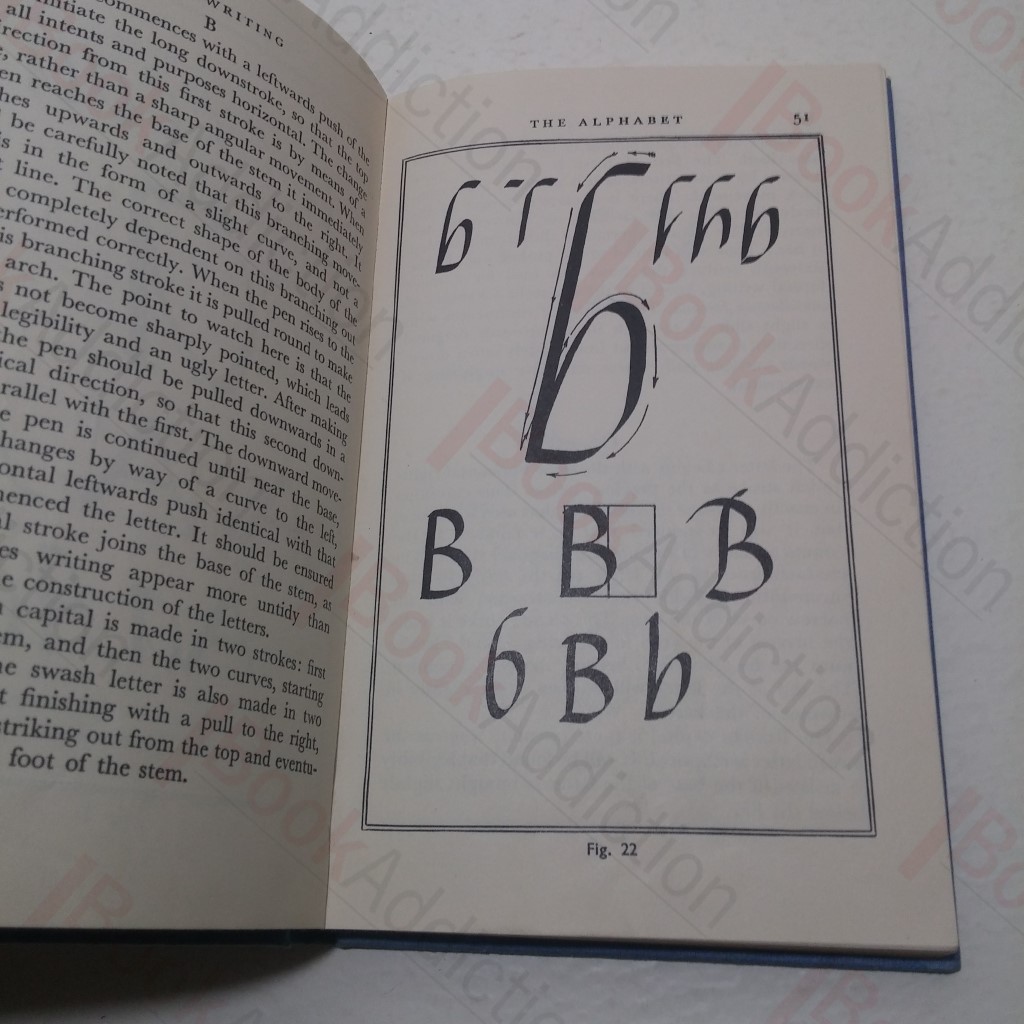 WRITING
B
commences with a leftwards push of the
initiate the long downstroke, so that the top
all intents and purposes horizontal. The change
direction from this first stroke is by means of a
rather than a sharp angular movement. When
reaches the base of the stem it immediately
upwards and outwards to the right. It
be carefully noted that this branching move-
is in the form of a slight curve, and not a
line. The correct shape of the body of the
completely dependent on this branching out
performed correctly. When the pen rises to the
branching stroke it is pulled round to make
arch. The point to watch here is that the
not become sharply pointed, which leads
legibility and an ugly letter. After making
the pen should be pulled downwards in a
direction, so that this second down-
parallel with the first. The downward move-
pen is continued until near the base,
changes by way of a curve to the left,
leftwards push identical with that
the letter. It should be ensured
stroke joins the base of the stem, as
writing appear more untidy than
construction of the letters.
capital is made in two strokes: first
and then the two curves, starting
swash letter is also made in two
finishing with a pull to the right,
striking out from the top and eventu-
foot of the stem.
THE ALPHABET 51
b b b
B B B
b B b
Fig. 22
BookAddiction